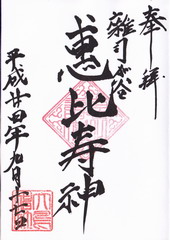 奉拝
雑司が谷
恵比寿神
平成廿四年九月十六日